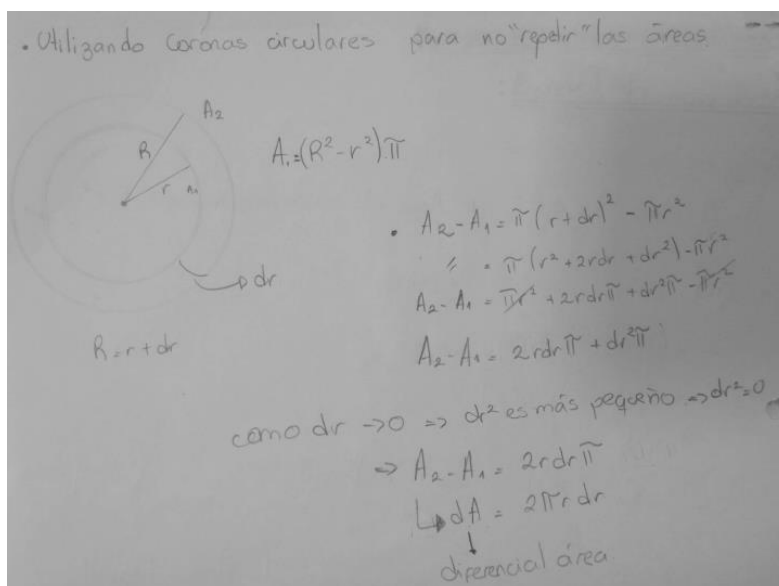 . Utilizando coronas circulares para no "repetir" las áreas.
A₂
R
r A₁
A₁=(R²-r²)π
dr
R=r+dr
. A₂-A₁=π(r+dr)²-πr²
〃 = π(r²+2rdr+dr²)-πr²
A₂-A₁=πr²+2rdrπ+dr²π-πr²
A₂-A₁=2rdrπ+dr²π
como dr ->0 => dr² es más pequeño => dr²=0
=> A₂-A₁= 2rdrπ
↳ dA = 2πrdr
↓
diferencial área